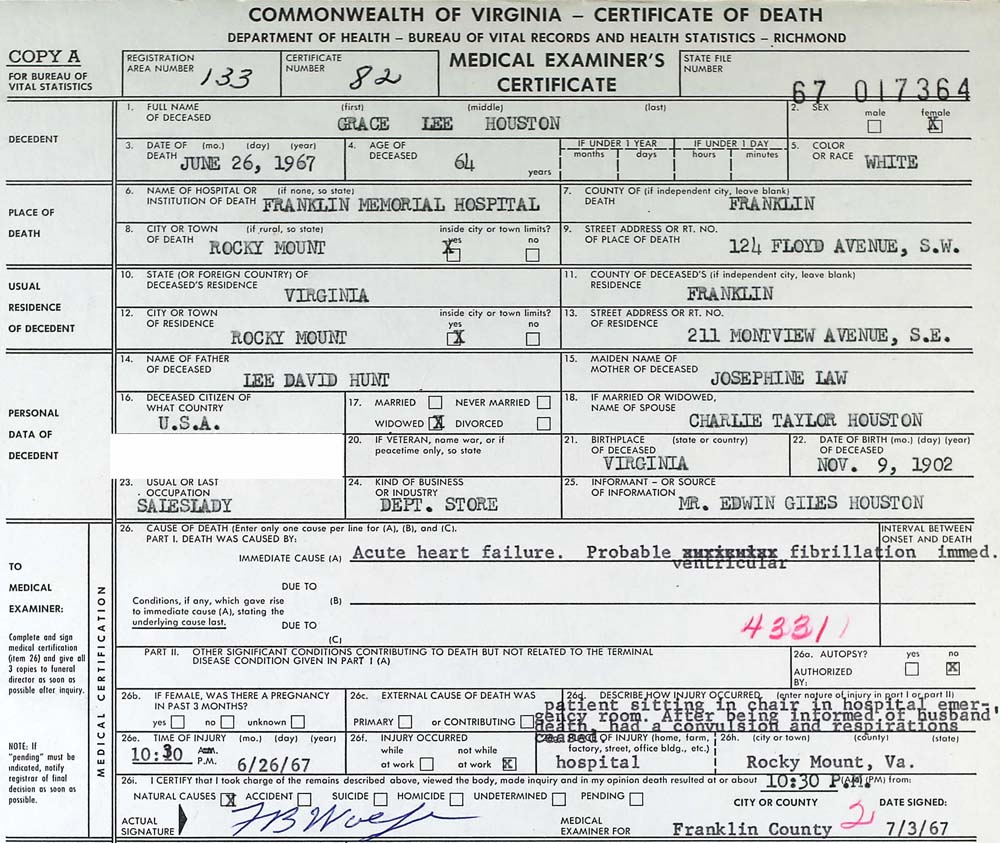 COMMONWEALTH OF VIRGINIA – CERTIFICATE OF DEATH
DEPARTMENT OF HEALTH – BUREAU OF VITAL RECORDS AND HEALTH STATISTICS – RICHMOND
COPY A
FOR BUREAU OF VITAL STATISTICS
REGISTRATION AREA NUMBER 133
CERTIFICATE NUMBER 82
MEDICAL EXAMINER'S CERTIFICATE
STATE FILE NUMBER
67 017364
DECEDENT
1. FULL NAME OF DECEASED (first) (middle) (last)
GRACE LEE HOUSTON
2. SEX male female X
3. DATE OF DEATH (mo.) (day) (year) JUNE 26, 1967
4. AGE OF DECEASED 64 years
IF UNDER 1 YEAR months days
IF UNDER 1 DAY hours minutes
5. COLOR OR RACE WHITE
PLACE OF DEATH
6. NAME OF HOSPITAL OR INSTITUTION OF DEATH (if none, so state) FRANKLIN MEMORIAL HOSPITAL
7. COUNTY OF DEATH (if independent city, leave blank) FRANKLIN
8. CITY OR TOWN OF DEATH (if rural, so state) ROCKY MOUNT
inside city or town limits? yes X no
9. STREET ADDRESS OR RT. NO. OF PLACE OF DEATH 124 FLOYD AVENUE, S.W.
USUAL RESIDENCE OF DECEDENT
10. STATE (OR FOREIGN COUNTRY) OF DECEASED'S RESIDENCE VIRGINIA
11. COUNTY OF DECEASED'S RESIDENCE (if independent city, leave blank) FRANKLIN
12. CITY OR TOWN OF RESIDENCE ROCKY MOUNT
inside city or town limits? yes X no
13. STREET ADDRESS OR RT. NO. OF RESIDENCE 211 MONTVIEW AVENUE, S.E.
PERSONAL DATA OF DECEDENT
14. NAME OF FATHER OF DECEASED LEE DAVID HUNT
15. MAIDEN NAME OF MOTHER OF DECEASED JOSEPHINE LAW
16. DECEASED CITIZEN OF WHAT COUNTRY U.S.A.
17. MARRIED NEVER MARRIED
WIDOWED X DIVORCED
18. IF MARRIED OR WIDOWED, NAME OF SPOUSE CHARLIE TAYLOR HOUSTON
20. IF VETERAN, name war, or if peacetime only, so state
21. BIRTHPLACE OF DECEASED (state or country) VIRGINIA
22. DATE OF BIRTH (mo.) (day) (year) OF DECEASED NOV. 9, 1902
23. USUAL OR LAST OCCUPATION SALESLADY
24. KIND OF BUSINESS OR INDUSTRY DEPT. STORE
25. INFORMANT – OR SOURCE OF INFORMATION MR. EDWIN GILES HOUSTON
TO MEDICAL EXAMINER:
Complete and sign medical certification (item 26) and give all 3 copies to funeral director as soon as possible after inquiry.
NOTE: If "pending" must be indicated, notify registrar of final decision as soon as possible.
MEDICAL CERTIFICATION
26. CAUSE OF DEATH (Enter only one cause per line for (A), (B), and (C).
PART I. DEATH WAS CAUSED BY:
INTERVAL BETWEEN ONSET AND DEATH
IMMEDIATE CAUSE (A) Acute heart failure. Probable fibrillation immed.
ventricular
DUE TO
Conditions, if any, which gave rise to immediate cause (A), stating the underlying cause last.
(B)
DUE TO
(C)
4331
PART II. OTHER SIGNIFICANT CONDITIONS CONTRIBUTING TO DEATH BUT NOT RELATED TO THE TERMINAL DISEASE CONDITION GIVEN IN PART I (A)
26a. AUTOPSY? yes no X
AUTHORIZED BY:
26b. IF FEMALE, WAS THERE A PREGNANCY IN PAST 3 MONTHS?
yes no unknown
26c. EXTERNAL CAUSE OF DEATH WAS
PRIMARY or CONTRIBUTING
26d. DESCRIBE HOW INJURY OCCURRED (enter nature of injury in part I or part II)
patient sitting in chair in hospital emer-
gency room. After being informed of husband'
death had a convulsion and respirations
ceased.
26e. TIME OF INJURY (mo.) (day) (year)
10:30 A.M. P.M. 6/26/67
26f. INJURY OCCURRED
while at work not while at work X
PLACE OF INJURY (home, farm, factory, street, office bldg., etc.)
hospital
26h. (city or town) (county) (state)
Rocky Mount, Va.
26i. I CERTIFY that I took charge of the remains described above, viewed the body, made inquiry and in my opinion death resulted at or about 10:30 P.M. (AM) (PM) from:
NATURAL CAUSES X ACCIDENT SUICIDE HOMICIDE UNDETERMINED PENDING
ACTUAL SIGNATURE
MEDICAL EXAMINER FOR
CITY OR COUNTY
Franklin County 2
DATE SIGNED:
7/3/67